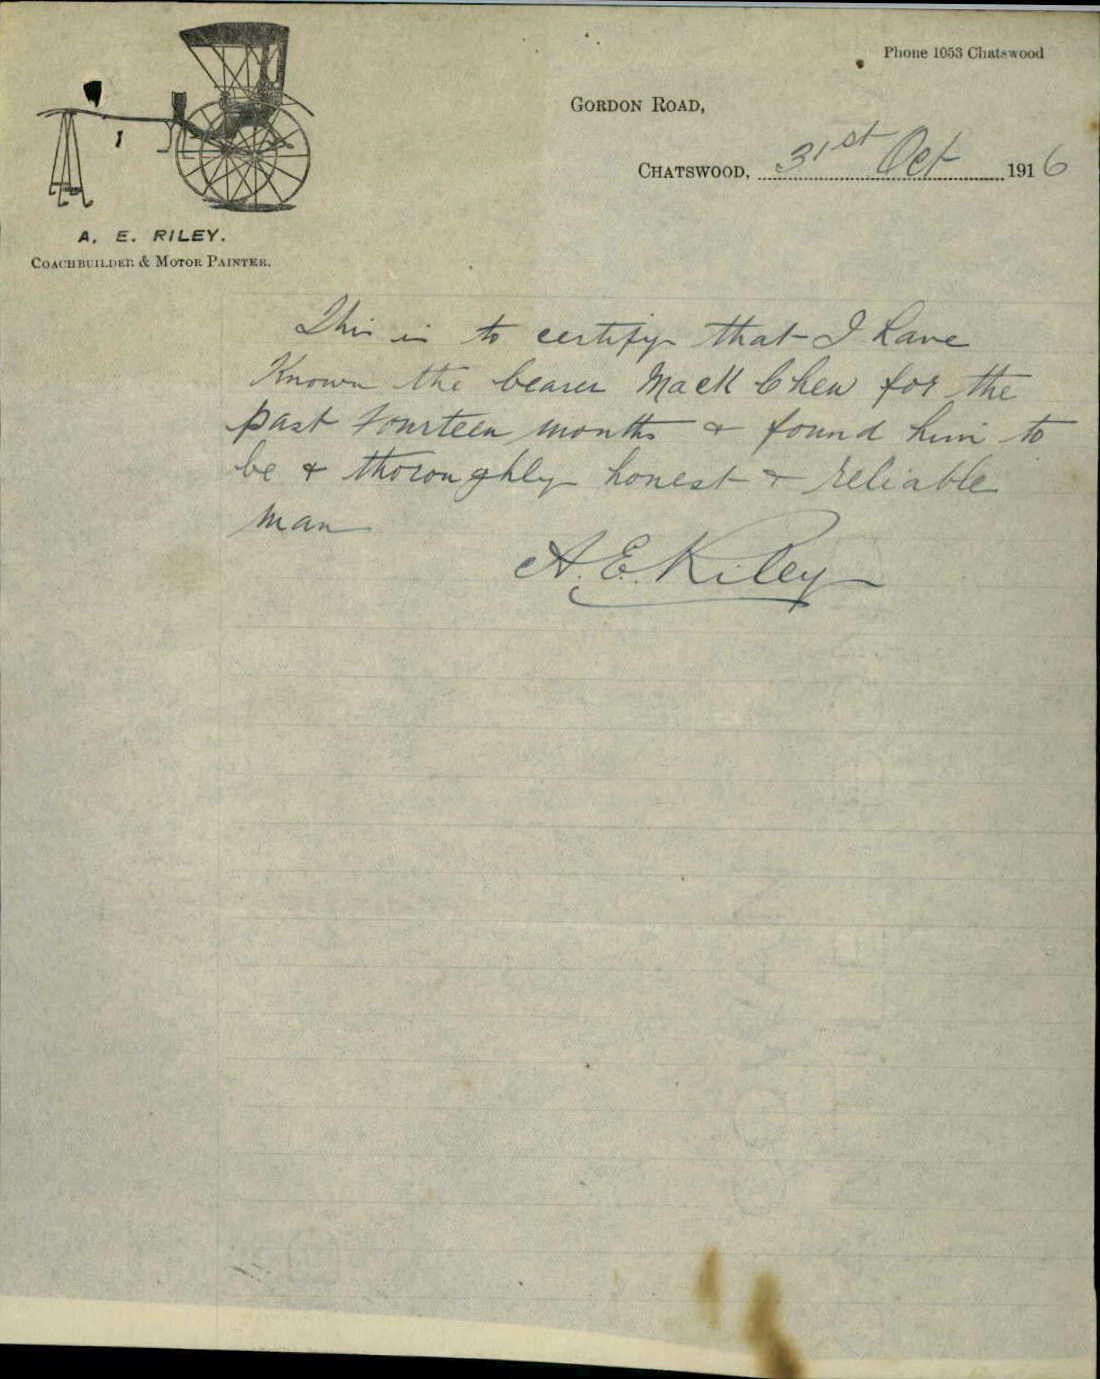 Phone 1053 Chatswood
GORDON ROAD,
CHATSWOOD, 31st Oct 1916
A. E. RILEY.
COACHBUILDER & MOTOR PAINTER.
This is to certify that I have
Known the bearer Mack Chew for the
past fourteen months & found him to
be & thoroughly honest & reliable
man
A. E. Riley